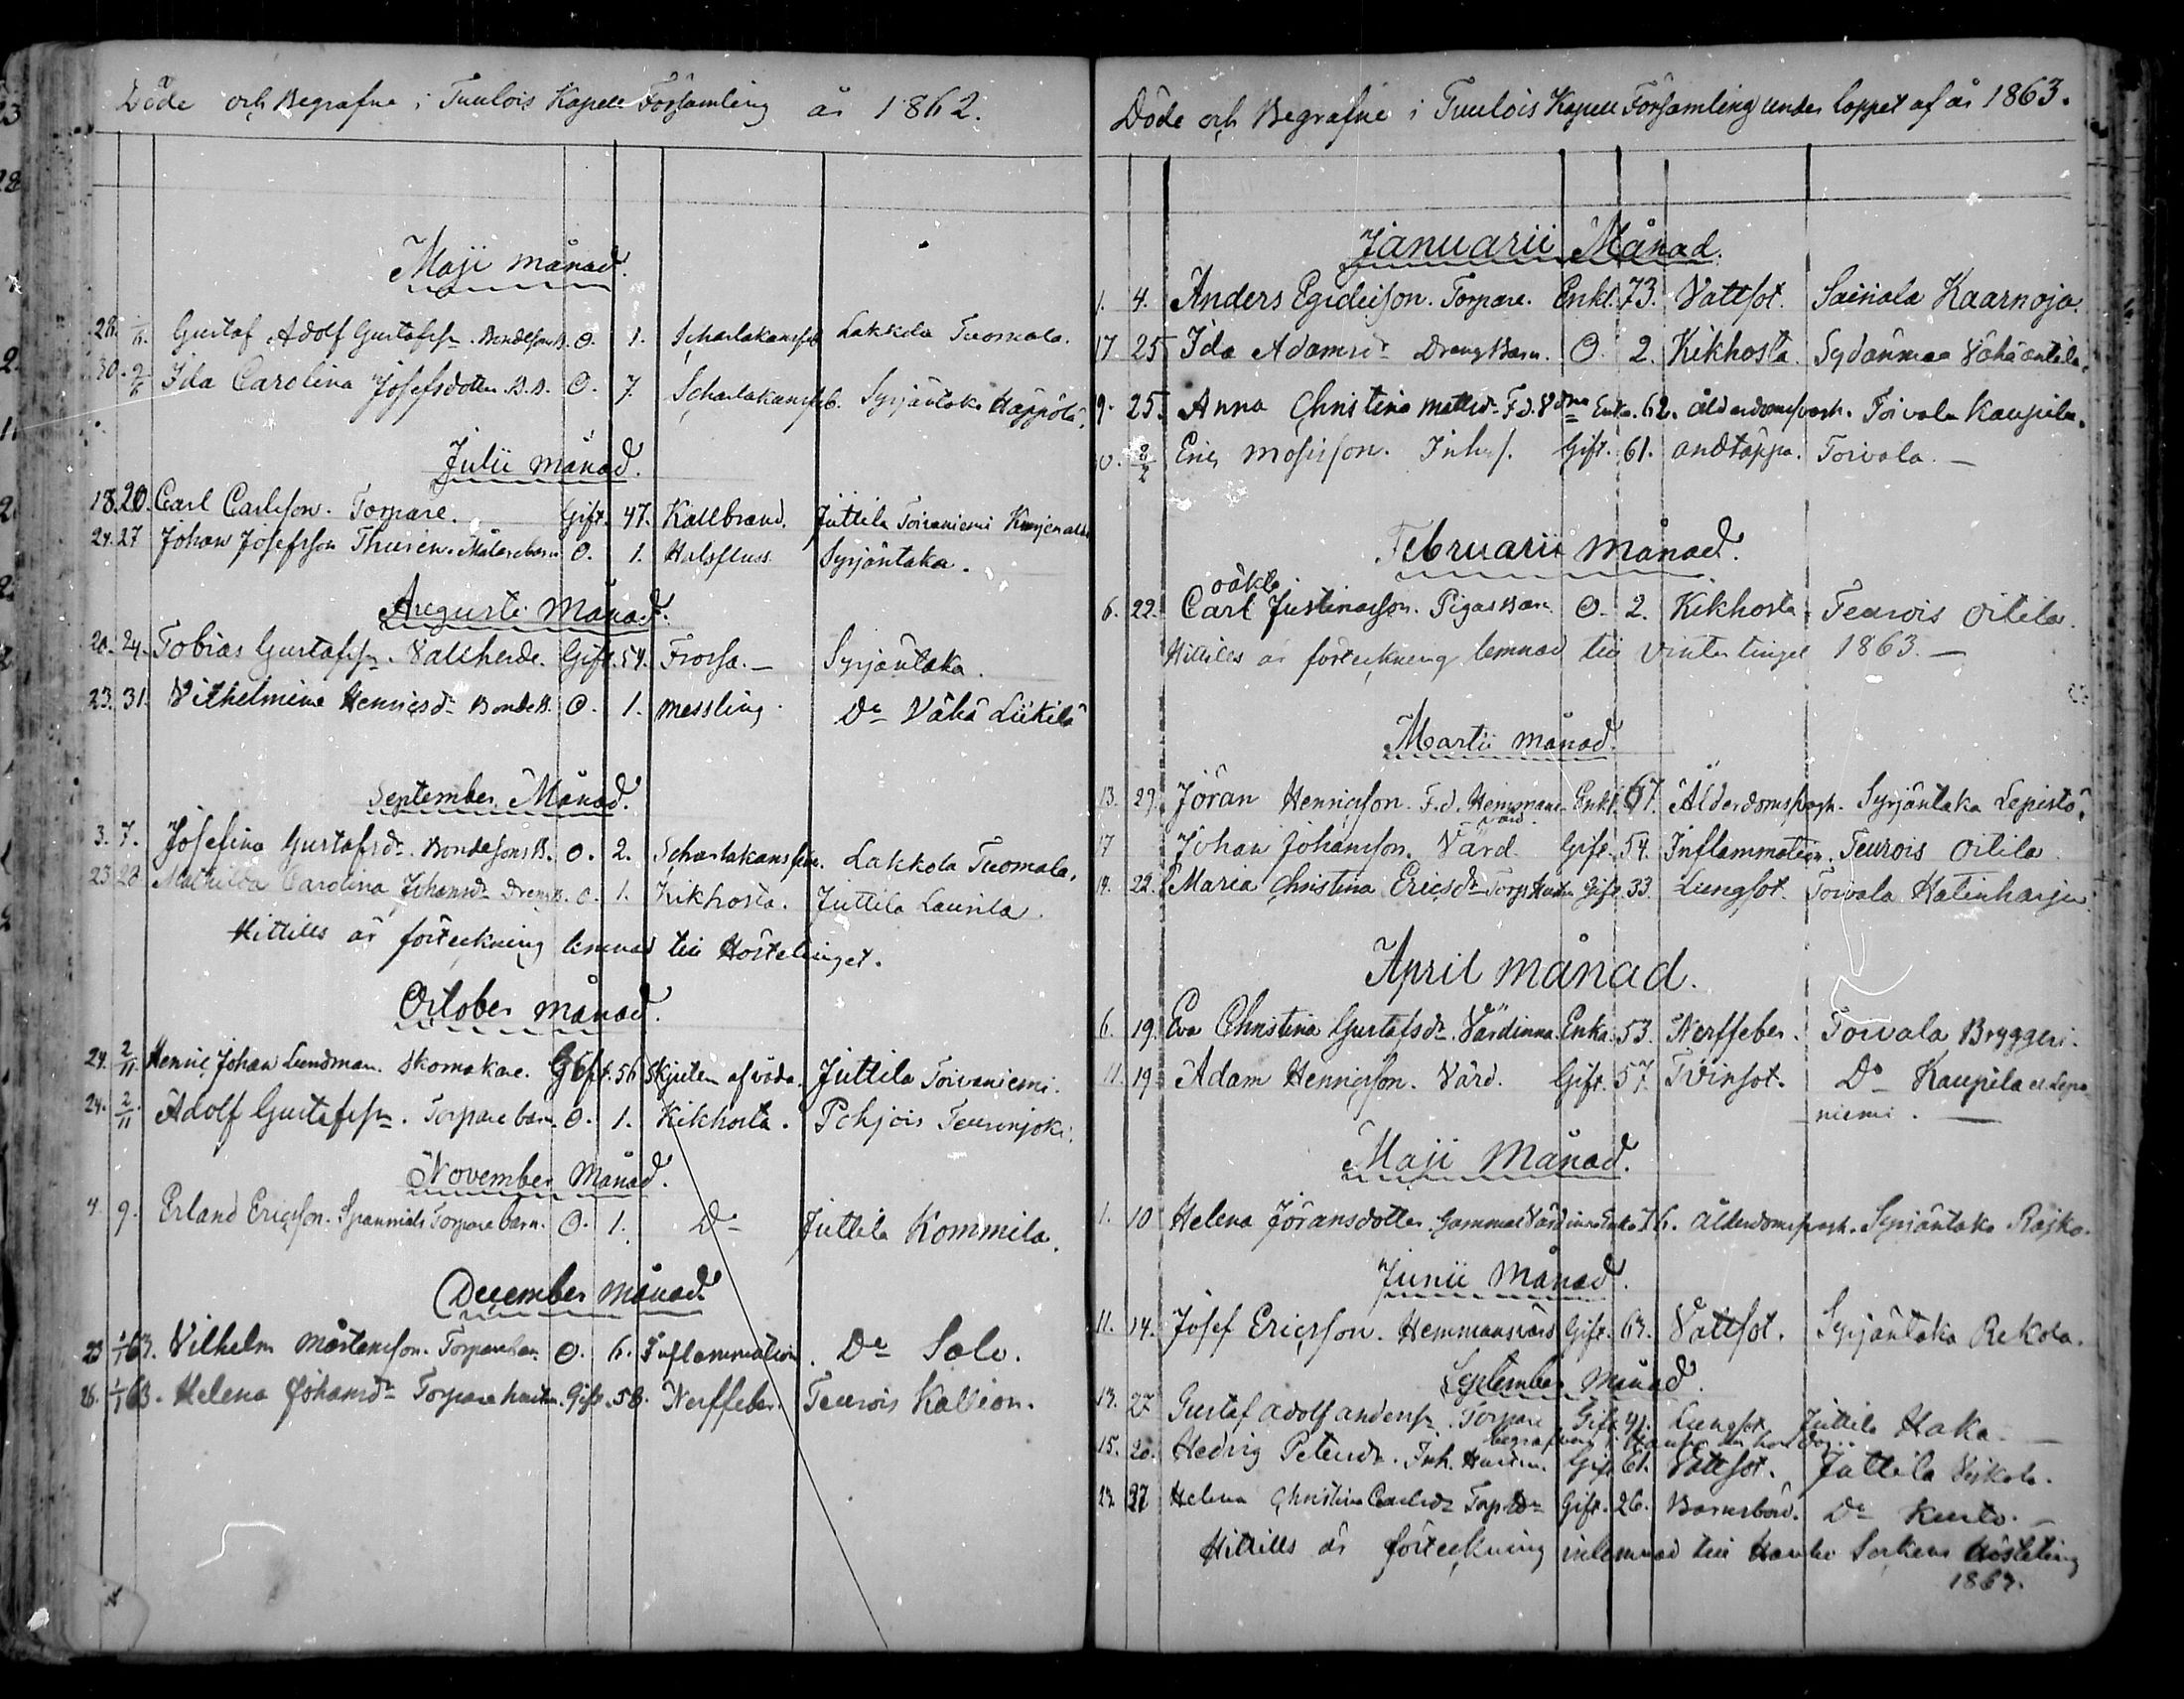 Döde och Begrafne i Tuulois Kapell Församling år 1862.
Maji månad.
28. 1/6. Gustaf Adolf Gustafss. Bondeson B. O. 1. Scharlakansfeb Lakkola Tuomala.
30. 2/6 Ida Carolina Josefsdotter B.B. O. 7. Scharlakansfeb. Syrjäntaka Häppölä.
Julii månad.
18. 20. Carl Carlsson. Torpare. Gift. 47. Kallbrand. Juttila Toivaniemi
24. 27 Johan Josefsson Thuren. Målarebarn O. 1. Halsfluss. Syrjäntaka.
Augusti Månad.
20. 24. Tobias Gustafss. Vallherde. Gift. 54. Frossa. — Syrjäntaka.
23. 31. Vilhelmina Henricsdr Bonde B. O. 1. messling. Do Vähä Liikilä
September Månad.
3. 7. Josefina Gustafsdr. Bondesons B. O. 2. Scharlakansfeb. Lakkola Tuomala.
23 28 Mathilda Carolina Johansdr Drengs B. O. 1. Kikhosta. Juttila Laurila.
Hittills är förteckning lemnad till Höstetinget.
October månad.
24. 2/11 Henric Johan Lundman. Skomakare. Gift. 56 Skjuten af våda. Juttila Toivaniemi.
24. 2/11. Adolf Gustafss. Torpare barn. O. 1. Kikhosta. Pohjois Teuronjoki.
November Månad.
4. 9. Erland Ericsson. Spannmåls Torpare barn. O. 1. Do Juttila Kommila.
December månad
23 1/1 63. Vilhelm Mårtensson. Torparebarn. O. 6. Inflammation. Do Salo.
26. 1/1 63. Helena Johansdr Torpare hustru. Gift. 58. Nerffeber. Teurois Kallion.
Döde och Begrafne i Tuulois Kapell Församling under loppet af år 1863.
Januarii Månad.
1. 4. Anders Egideison. Torpare. Enkl. 73. Vattsot. Sairiala Kaarnoja.
17 25 Ida Adamsdr Dreng Barn. O. 2. Kikhosta. Sydänmaa Vähäantila.
9. 25. Anna Christina Mattsdr. F.d. Vdna Enka. 62. ålderdomssvagh. Toivola Kaupila.
30. 8/2 Eric Mosisson. Inhs. Gift. 61. andtäppa. Toivola. —
Februarii månad.
oäkta
6. 22. Carl Justinasson. Pigas Barn O. 2. Kikhosta. Teurois Oitila.
Hittills är förteckning lemnad till Vintertinget 1863. —
Martii månad.
13. 29. Jöran Henricsson. F.d. Hemmans Enkl. 67. Ålderdomssvagh. Syrjäntaka Lepistö.
värd.
17 Johan Johansson. Värd. Gift. 54. Inflammation. Teurois Oitila
19. 22. Maria Christina Ericsdr Torp Hustru Gift. 33. Lungsot. Toivola Hatinharju.
April månad.
6. 19. Eva Christina Gustafsdr. Värdinna. Enka. 53. Nerffeber. Toivola Bryggeri.
11. 19. Adam Henricsson. Värd. Gift. 57. Tvinsot. Do Kaupila
niemi. —
Maji Månad.
1. 10 Helena Jöransdotter. Gammal Värdinna Enka 76. ålderdomssvagh. Syrjäntaka Rajko.
Junii Månad.
11. 14. Josef Ericsson. Hemmansvärd Gift. 63. Vattsot. Syrjäntaka Rekola.
September månad.
13. 27 Gustaf Adolf Anderss. Torpare Gift. 41. Lungsot. Juttila Haka. —
begrafven i Hauho
15. 20. Hedvig Petersdr. Inh. Hustru. Gift 61. Vattsot. Juttila
23. 27 Helena Christina Carlsdr Torp Gift. 26. Barnsbörd. Do Kurto. —
Hittills är förteckning inlemnad till Hauho Sockens Hösteting
1863.